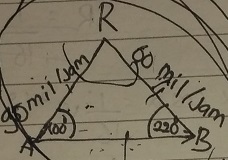 R
90 mil/jam
80 mil/jam
100°
220°
A
B